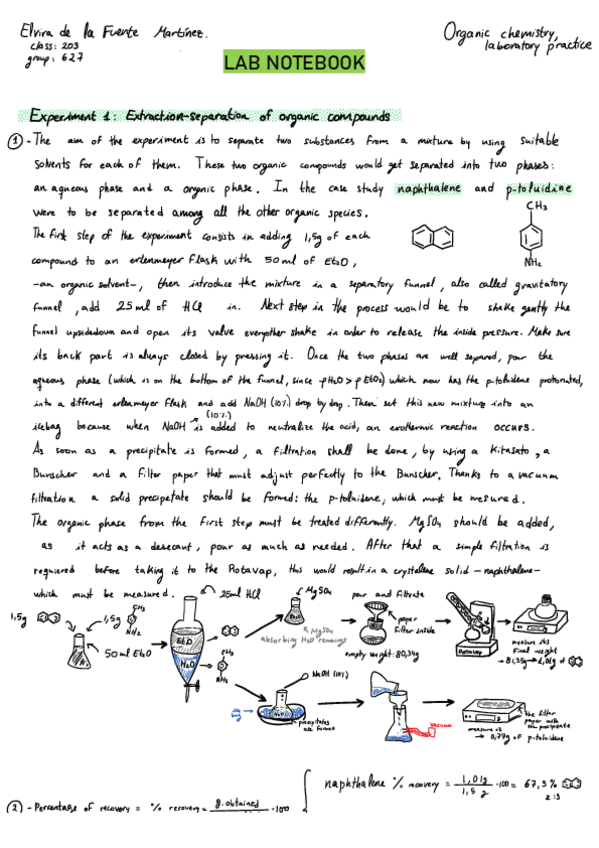 Elvira de la Fuente Martínez.
class: 203
group: 627
Organic chemistry,
laboratory practice
LAB NOTEBOOK
Experiment 1: Extraction-separation of organic compounds
1 - The aim of the experiment is to separate two substances from a mixture by using suitable
solvents for each of them. These two organic compounds would get separated into two phases:
an aqueous phase and a organic phase. In the case study naphthalene and p-toluidine
were to be separated among all the other organic species.
CH3
NH2
The first step of the experiment consists in adding 1,5g of each
compound to an erlenmeyer flask with 50ml of Et2O,
-an organic solvent-, then introduce the mixture in a separatory funnel, also called gravitatory
funnel, add 25ml of HCl in. Next step in the process would be to shake gently the
funnel upsidedown and open its valve everyother shake in order to release the inside pressure. Make sure
its back part is always closed by pressing it. Once the two phases are well separed, pour the
aqueous phase (which is on the bottom of the funnel, since ρH2O > ρEtO2) which now has the p-toluidene protonated,
into a different erlenmeyer flask and add NaOH (10%) drop by drop. Then set this new mixture into an
icebag because when NaOH (10%) is added to neutralize the acid, an exothermic reaction occurs.
As soon as a precipitate is formed, a filtration shall be done, by using a Kitasato, a
Bunscher and a filter paper that must adjust perfectly to the Bunscher. Thanks to a vacuum
filtration a solid precipetate should be formed: the p-toluidene, which must be mesured.
The organic phase from the first step must be treated differently. MgSO4 should be added,
as it acts as a desecant, pour as much as needed. After that a simple filtration is
requiered before taking it to the Rotavap, this would result in a crystalene solid -naphthalene-
which must be measured.
25ml HCl
MgSO4
pour and filtrate
1,5g
1,5g
CH3
NH2
50ml Et2O
Et2O
H2O
CH3
NH2
MgSO4
absorbing H2O remainings
paper
filter inside
empty weight: 80,34g
Rotavap
measure its
final weight
→ 81,35g → 1,01g of
NaOH (10%)
precipitates
are formed
vacuum
the filter
paper with
the precipitate
measure it
→ 0,77g of p-toluidene
2 - Percentage of recovery = % recovery = g. obtained · 100
naphthalene % recovery = 1,01g / 1,5 g · 100 = 67,3%